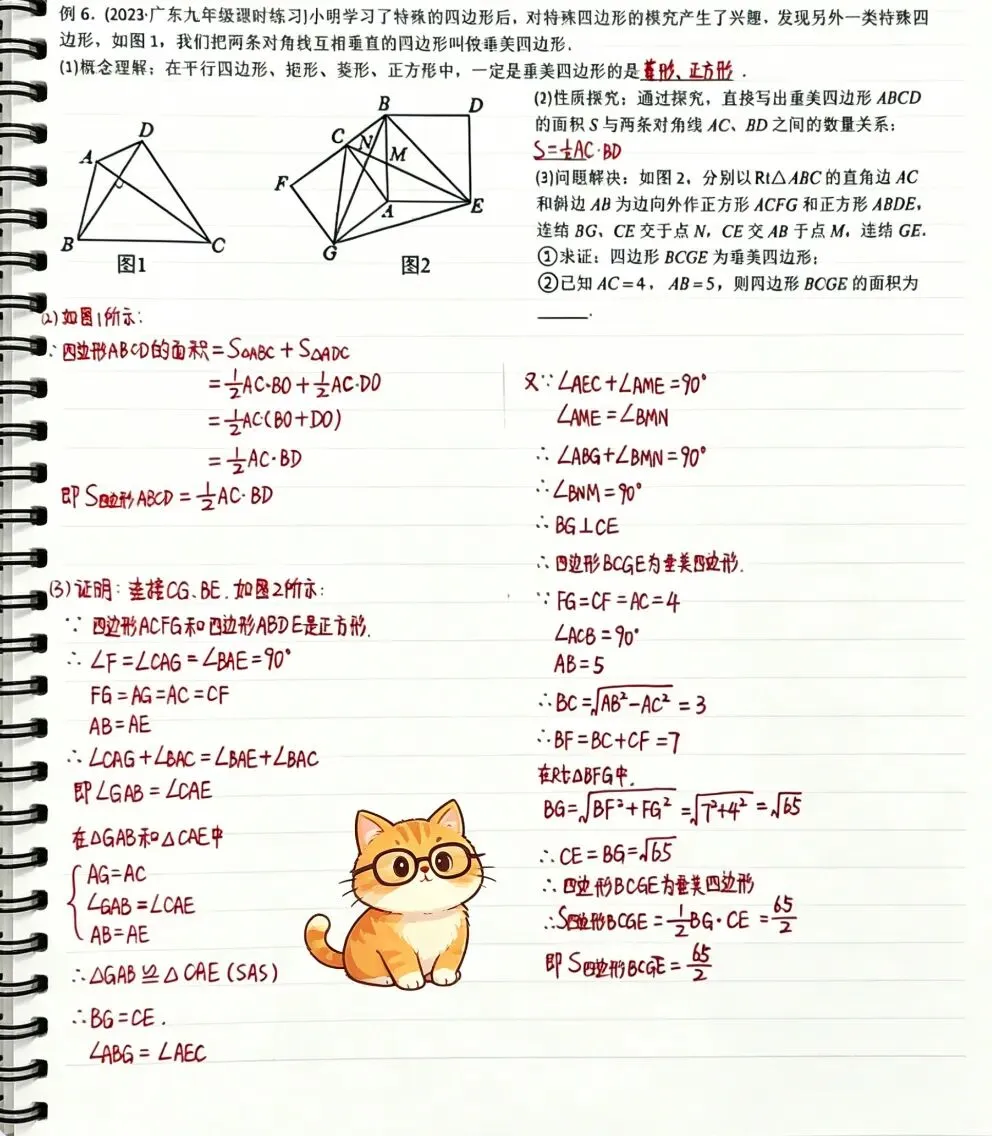 例 6. (2023·广东九年级课时练习)小明学习了特殊的四边形后，对特殊四边形的模究产生了兴趣，发现另外一类特殊四
边形，如图 1，我们把两条对角线互相垂直的四边形叫做垂美四边形.
(1)概念理解：在平行四边形、矩形、菱形、正方形中，一定是垂美四边形的是菱形、正方形.
A
D
B
C
图1
B
D
C
N
M
F
A
E
G
图2
(2)性质探究：通过探究，直接写出垂美四边形 ABCD
的面积 S 与两条对角线 AC、BD 之间的数量关系：
S=½AC·BD
(3)问题解决：如图 2，分别以Rt△ABC 的直角边 AC
和斜边 AB 为边向外作正方形 ACFG 和正方形 ABDE，
连结 BG、CE 交于点 N，CE 交 AB 于点 M，连结 GE.
①求证：四边形 BCGE 为垂美四边形；
②已知 AC=4，AB=5，则四边形 BCGE 的面积为
______.
(2)如图1所示：
∵四边形ABCD的面积=S△ABC+S△ADC
=½AC·BO+½AC·DO
=½AC·(BO+DO)
=½AC·BD
即S四边形ABCD=½AC·BD
(3)证明：连接CG、BE.如图2所示：
∵ 四边形ACFG和四边形ABDE是正方形.
∴ ∠F=∠CAG=∠BAE=90°
FG=AG=AC=CF
AB=AE
∴ ∠CAG+∠BAC=∠BAE+∠BAC
即∠GAB=∠CAE
在△GAB和△CAE中
{AG=AC
∠GAB=∠CAE
AB=AE
∴△GAB≌△CAE(SAS)
∴BG=CE.
∠ABG=∠AEC
又∵∠AEC+∠AME=90°
∠AME=∠BMN
∴ ∠ABG+∠BMN=90°
∴∠BNM=90°
∴ BG⊥CE
∴ 四边形BCGE为垂美四边形.
∵ FG=CF=AC=4
∠ACB=90°
AB=5
∴BC=√(AB²-AC²)=3
∴BF=BC+CF=7
在Rt△BFG中.
BG=√(BF²+FG²)=√(7²+4²)=√65
∴CE=BG=√65
∴ 四边形BCGE为垂美四边形
∴S四边形BCGE=½BG·CE=65/2
即S四边形BCGE=65/2